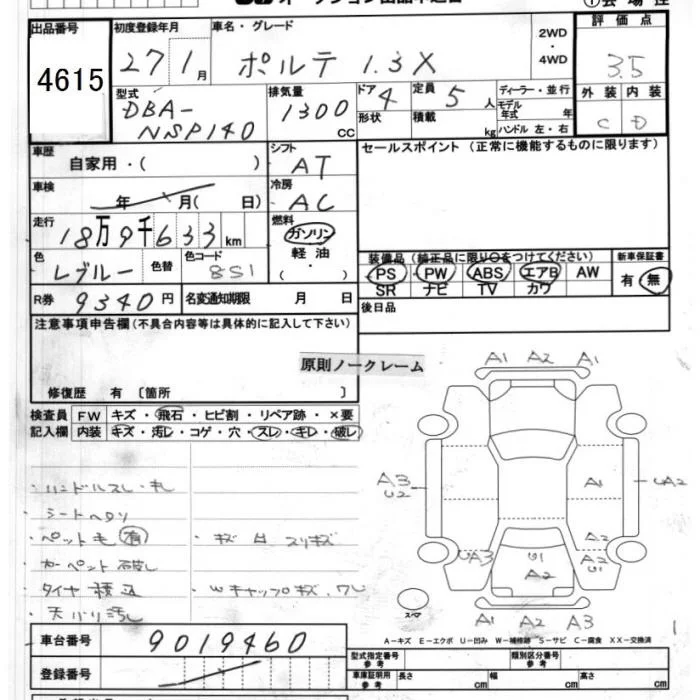 出品番号
4615
初度登録年月
27 1月
車名・グレード
ポルテ 1.3X
2WD
・
4WD
評価点
3.5
型式
DBA-
NSP140
排気量
1300
CC
ドア
4
形状
定員
5人
積載
kg
ディーラー・並行
モデル
年式 年
ハンドル 左・右
外装 内装
C D
車歴
自家用・( )
シフト
AT
セールスポイント (正常に機能するものに限ります)
車検
年 月( 日)
冷房
AC
走行
18万9千633km
燃料
ガソリン
軽油
・( )
色
レブルー
色替
色コード
8S1
装備品 (純正品に限り○をつけてください)
PS PW ABS エアB AW
SR ナビ TV カワ
新車保証書
有 無
R券
9340円
名変通知期限 月 日
後日品
注意事項申告欄 (不具合内容等は具体的に記入して下さい)
原則ノークレーム
修復歴 有 〔箇所 〕
検査員
記入欄
FW キズ・飛石・ヒビ割・リペア跡・×要
内装 キズ・汚し・コゲ・穴・スレ・キレ・破レ
・ハンドルスレ・キレ
・シートヘタリ
・ペット毛 有
・カーペット破レ
・タイヤ積込
・天バリ汚し
・Wキャップキズ、ワレ
A1 A2 A1
A3
U2
A1
UA2
A2
A2
U1
UA3
U1
A2
A2 A2 A3
スペア
1
A-キズ E-エクボ U-凹み W-補修跡 S-サビ C-腐食 XX-交換済
車台番号
9019460
登録番号
型式指定番号
参考
類別区分番号
参考
車庫証明用
参考
長さ cm
幅 cm
高さ cm